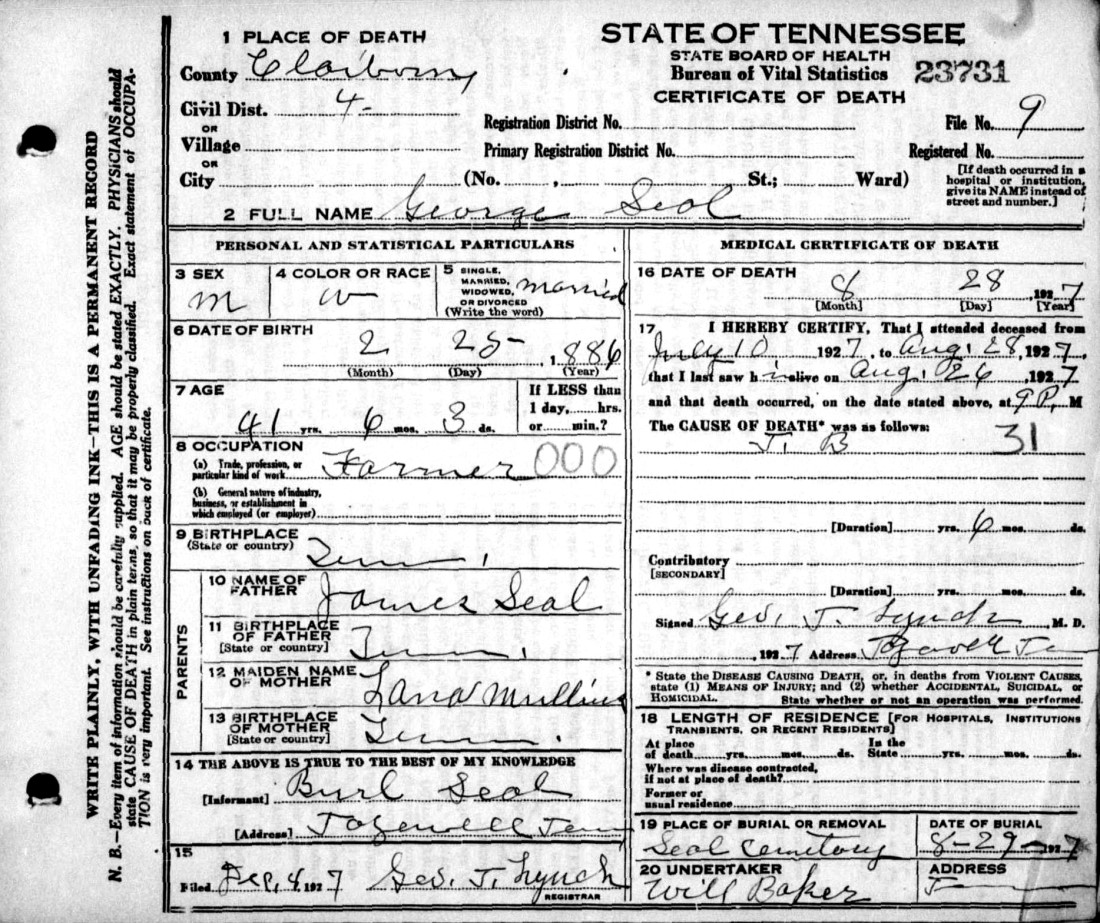 STATE OF TENNESSEE
STATE BOARD OF HEALTH
Bureau of Vital Statistics 23731
CERTIFICATE OF DEATH
1 PLACE OF DEATH
County Claiborn
Civil Dist. 4-
OR
Village
OR
City (No. , St.; Ward)
Registration District No. File No. 9
Primary Registration District No. Registered No.
[If death occurred in a
hospital or institution,
give its NAME instead of
street and number.]
2 FULL NAME George Seal
PERSONAL AND STATISTICAL PARTICULARS
3 SEX M
4 COLOR OR RACE W
5 SINGLE, MARRIED, WIDOWED, OR DIVORCED (Write the word) married
6 DATE OF BIRTH
2 25 , 1886
(Month) (Day) (Year)
7 AGE
41 yrs. 6 mos. 3 ds.
If LESS than
1 day, hrs.
or min.?
8 OCCUPATION
(a) Trade, profession, or
particular kind of work Farmer 000
(b) General nature of industry,
business, or establishment in
which employed (or employer)
9 BIRTHPLACE
(State or country) Tenn.
PARENTS
10 NAME OF
FATHER James Seal
11 BIRTHPLACE
OF FATHER
[State or country] Tenn.
12 MAIDEN NAME
OF MOTHER Lana Mullins
13 BIRTHPLACE
OF MOTHER
[State or country] Tenn.
14 THE ABOVE IS TRUE TO THE BEST OF MY KNOWLEDGE
[Informant] Burl Seal
[Address] Tazewell Tenn
15
Filed 4, 1927 Geo. T. Lynch
REGISTRAR
MEDICAL CERTIFICATE OF DEATH
16 DATE OF DEATH
8 28 , 1927
[Month] [Day] [Year]
17 I HEREBY CERTIFY, That I attended deceased from
July 10, 1927, to Aug. 28, 1927,
that I last saw him alive on Aug. 26, 1927
and that death occurred, on the date stated above, at 9 P. M
The CAUSE OF DEATH* was as follows:
T. B 31
[Duration] yrs. 6 mos. ds.
Contributory
[SECONDARY]
[Duration] yrs. mos. ds.
Signed Geo. T. Lynch M. D.
, 1927 Address Tazewell Ten
* State the DISEASE CAUSING DEATH, or, in deaths from VIOLENT CAUSES,
state (1) MEANS OF INJURY; and (2) whether ACCIDENTAL, SUICIDAL, or
HOMICIDAL. State whether or not an operation was performed.
18 LENGTH OF RESIDENCE [FOR HOSPITALS, INSTITUTIONS
TRANSIENTS, OR RECENT RESIDENTS]
At place
of death yrs. mos. ds. In the State yrs. mos. ds.
Where was disease contracted,
if not at place of death?
Former or
usual residence
19 PLACE OF BURIAL OR REMOVAL
Seal Cemetery
DATE OF BURIAL
8-29- 1927
20 UNDERTAKER
Will Baker
ADDRESS
WRITE PLAINLY, WITH UNFADING INK—THIS IS A PERMANENT RECORD
N. B.—Every item of information should be carefully supplied. AGE should be stated EXACTLY. PHYSICIANS should
state CAUSE OF DEATH in plain terms, so that it may be properly classified. Exact statement of OCCUPA-
TION is very important. See instructions on back of certificate.